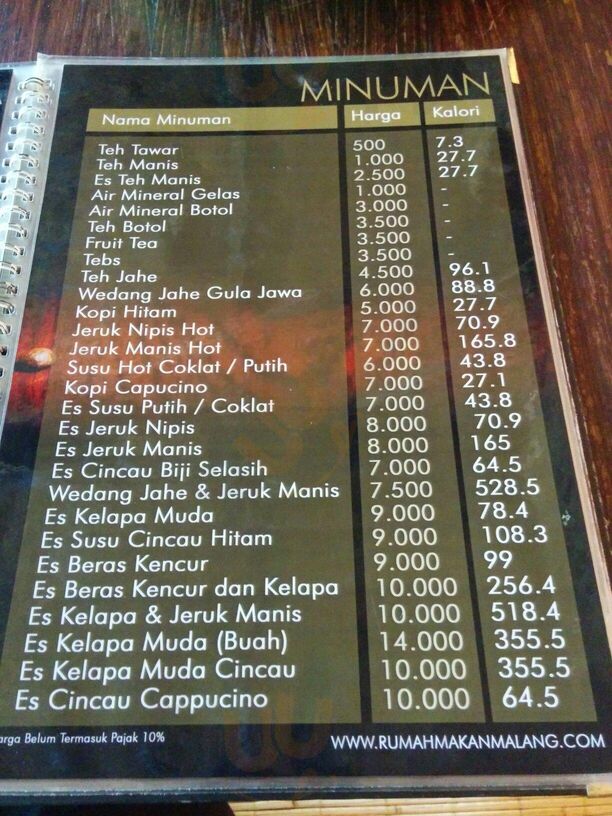 MINUMAN
Nama Minuman Harga Kalori
Teh Tawar 500 7.3
Teh Manis 1.000 27.7
Es Teh Manis 2.500 27.7
Air Mineral Gelas 1.000 -
Air Mineral Botol 3.000 -
Teh Botol 3.500 -
Fruit Tea 3.500 -
Tebs 3.500 -
Teh Jahe 4.500 96.1
Wedang Jahe Gula Jawa 6.000 88.8
Kopi Hitam 5.000 27.7
Jeruk Nipis Hot 7.000 70.9
Jeruk Manis Hot 7.000 165.8
Susu Hot Coklat / Putih 6.000 43.8
Kopi Capucino 7.000 27.1
Es Susu Putih / Coklat 7.000 43.8
Es Jeruk Nipis 8.000 70.9
Es Jeruk Manis 8.000 165
Es Cincau Biji Selasih 7.000 64.5
Wedang Jahe & Jeruk Manis 7.500 528.5
Es Kelapa Muda 9.000 78.4
Es Susu Cincau Hitam 9.000 108.3
Es Beras Kencur 9.000 99
Es Beras Kencur dan Kelapa 10.000 256.4
Es Kelapa & Jeruk Manis 10.000 518.4
Es Kelapa Muda (Buah) 14.000 355.5
Es Kelapa Muda Cincau 10.000 355.5
Es Cincau Cappucino 10.000 64.5
arga Belum Termasuk Pajak 10% WWW.RUMAHMAKANMALANG.COM